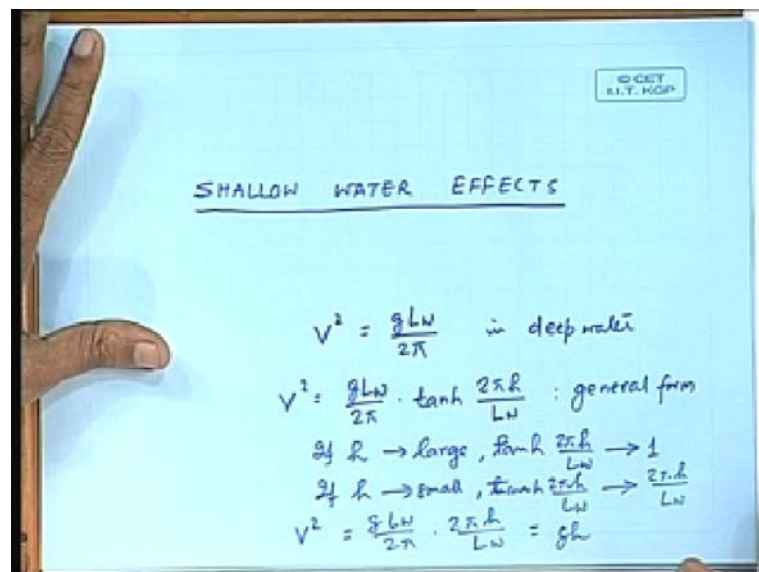 © CET
I.I.T. KGP
SHALLOW WATER EFFECTS
V² = gLw/2π in deep water
V² = gLw/2π · tanh 2πh/Lw : general form
If h → large, tanh 2πh/Lw → 1
If h → small, tanh 2πh/Lw → 2πh/Lw
V² = gLw/2π · 2πh/Lw = gh